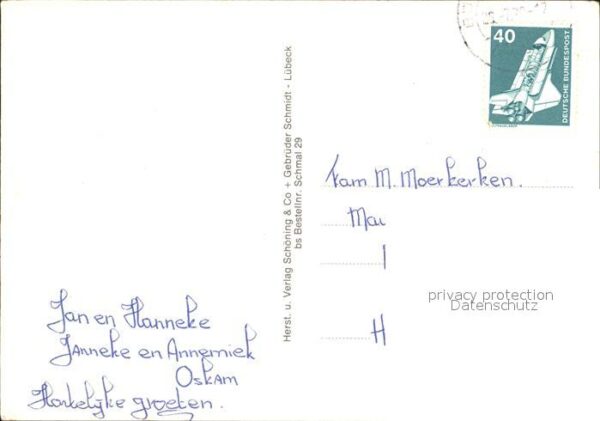 40
DEUTSCHE BUNDESPOST
Herst. u. Verlag Schöning & Co + Gebrüder Schmidt - Lübeck
bs Bestellnr. Schmal 29
Fam M. Moerkerken.
Mau
I
H
privacy protection
Datenschutz
Jan en Hanneke
Janneke en Annemiek
Oskam
Hartelijke groeten.